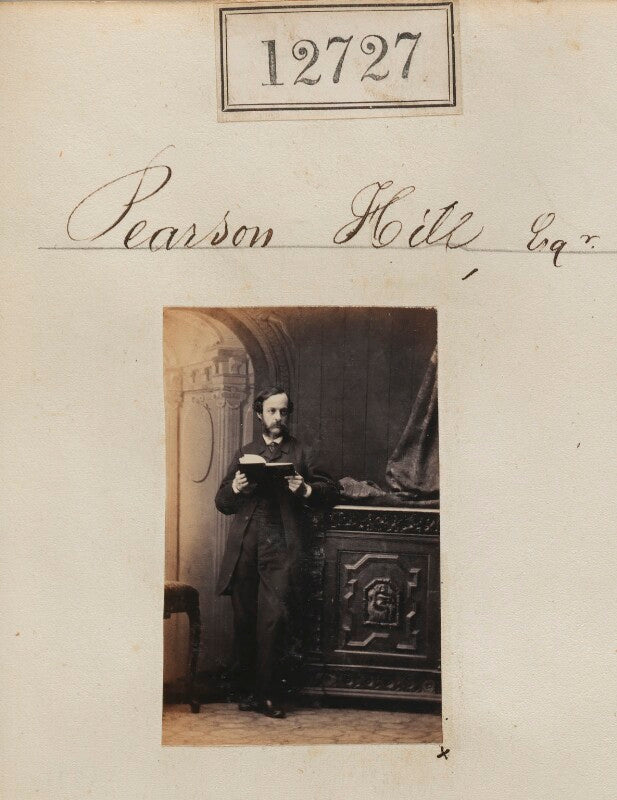 12727
Pearson Hill, Esqr.